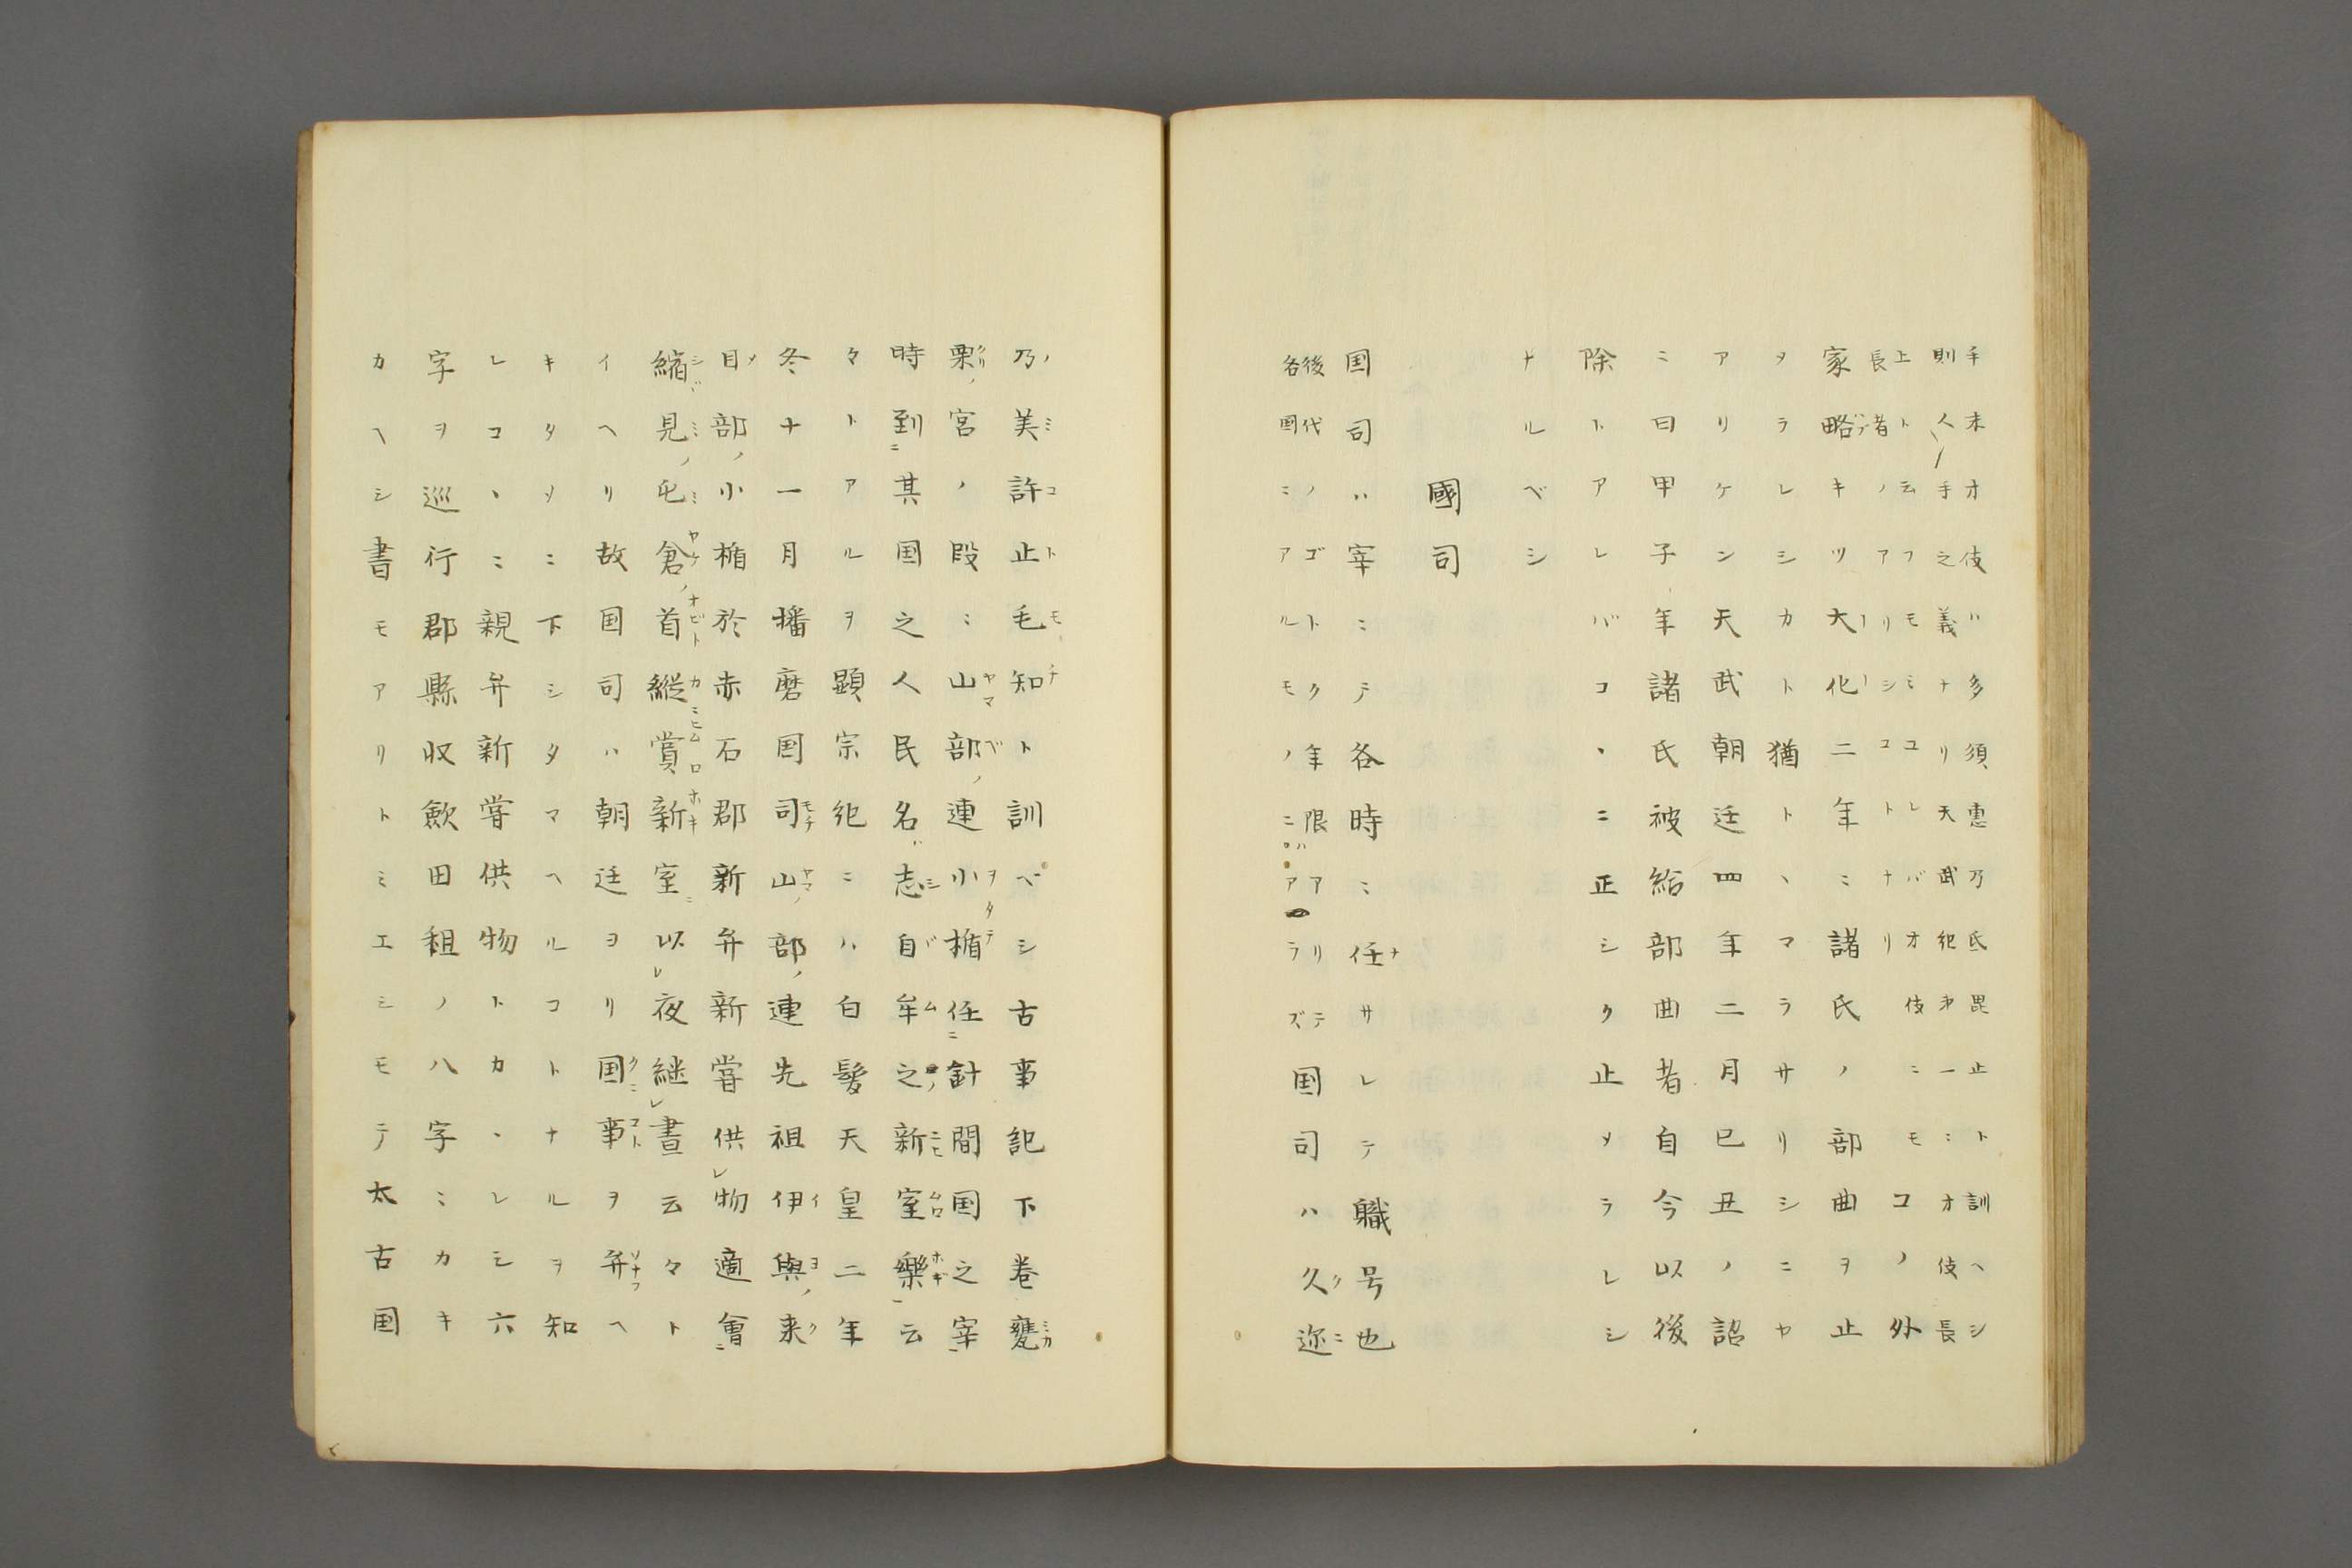 手末才伎ハ多須恵乃氐毘止ト訓ヘシ
則人手之義ナリ天武紀第一ニオ伎長
上ト云フモミユレバオ伎ニモ
長者ノアリシコトナリ
コノ外
家略キツ大化二年ニ諸氏ノ部曲ヲ止
ヲラレシカト猶トヽマラサリシニヤ
アリケン天武朝廷四年二月己丑ノ詔
ニ曰甲子年諸氏被給部曲者自今以後
除トアレバコヽニ正シク止メラレシ
ナルベシ
國司
国司ハ宰ニテ各時ニ任サレテ職号也
後代ノゴトク年限アリテ
各国ニアルモノニハアラズ
国司ハ久迩
乃美許止毛知ト訓ベシ古事記下巻甕
栗宮ノ段ニ山部連小楯任針間国之宰
時到其国之人民名志自牟之新室樂云
々トアルヲ顕宗紀ニハ白髪天皇二年
冬十一月播磨国司山部連先祖伊與来
目部小楯於赤石郡新弁新嘗供物適會
縮見屯倉首縦賞新室以夜継晝云々ト
イヘリ故国司ハ朝廷ヨリ国事ヲ弁ヘ
キタメニ下シタマヘルコトナルヲ知
レコヽニ親弁新嘗供物トカヽレシ六
字ヲ巡行郡縣収歛田租ノ八字ミカキ
カヘシ書モアリトミエシモテ太古国